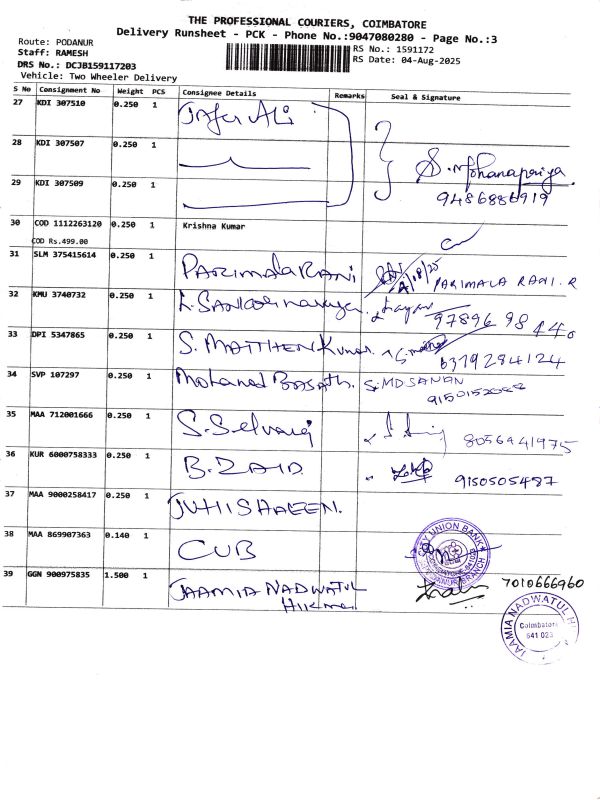 THE PROFESSIONAL COURIERS, COIMBATORE
Delivery Runsheet - PCK - Phone No.:9047080280 - Page No.:3
Route: PODANUR
Staff: RAMESH
DRS No.: DCJB159117203
Vehicle: Two Wheeler Delivery
RS No.: 1591172
RS Date: 04-Aug-2025
S No Consignment No Weight PCS Consignee Details Remarks Seal & Signature
27 KDI 307510 0.250 1 Jafer Ali
28 KDI 307507 0.250 1
29 KDI 307509 0.250 1 S. Mohanapriya
9486886919
30 COD 1112263120 0.250 1 Krishna Kumar
COD Rs.499.00
31 SLM 375415614 0.250 1 PARIMALA RANI PARIMALA RANI. R
32 KMU 3740732 0.250 1
33 DPI 5347865 0.250 1 S. 6379284124
34 SVP 107297 0.250 1 Mohamed S. MD SANAN
35 MAA 712001666 0.250 1 S. Selvaraj 8056941975
36 KUR 6000758333 0.250 1 B. ZAID 9150505487
37 MAA 9000258417 0.250 1 JUHI SHAEEN.
38 MAA 869907363 0.140 1 CUB
CITY UNION BANK
BRANCH
39 GGN 900975835 1.500 1 JAAMIA NADWATUL
7010666960
JAAMIA NADWATUL
Coimbatore
641 023